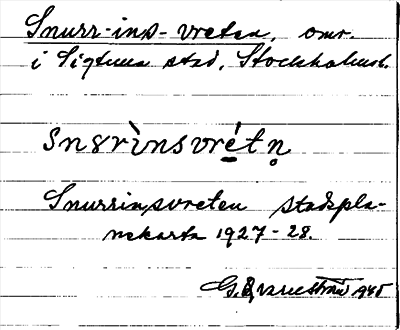 Snurr-ins-vreten, omr.
i Sigtuna stad, Stockholmsl.
snɤrìnsvrét̥n̥
Snurrinsvreten stadspla-
nekarta 1927-28.
G. 1945